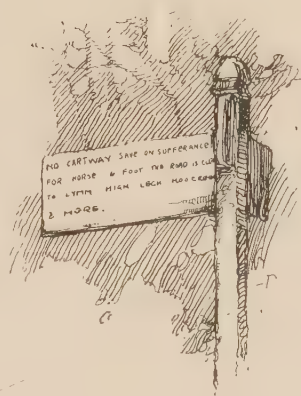 NO CARTWAY SAVE ON SUFFERANCE
FOR HORSE & FOOT THE ROAD IS
TO LYMM HIGH LEGH
& MORE.